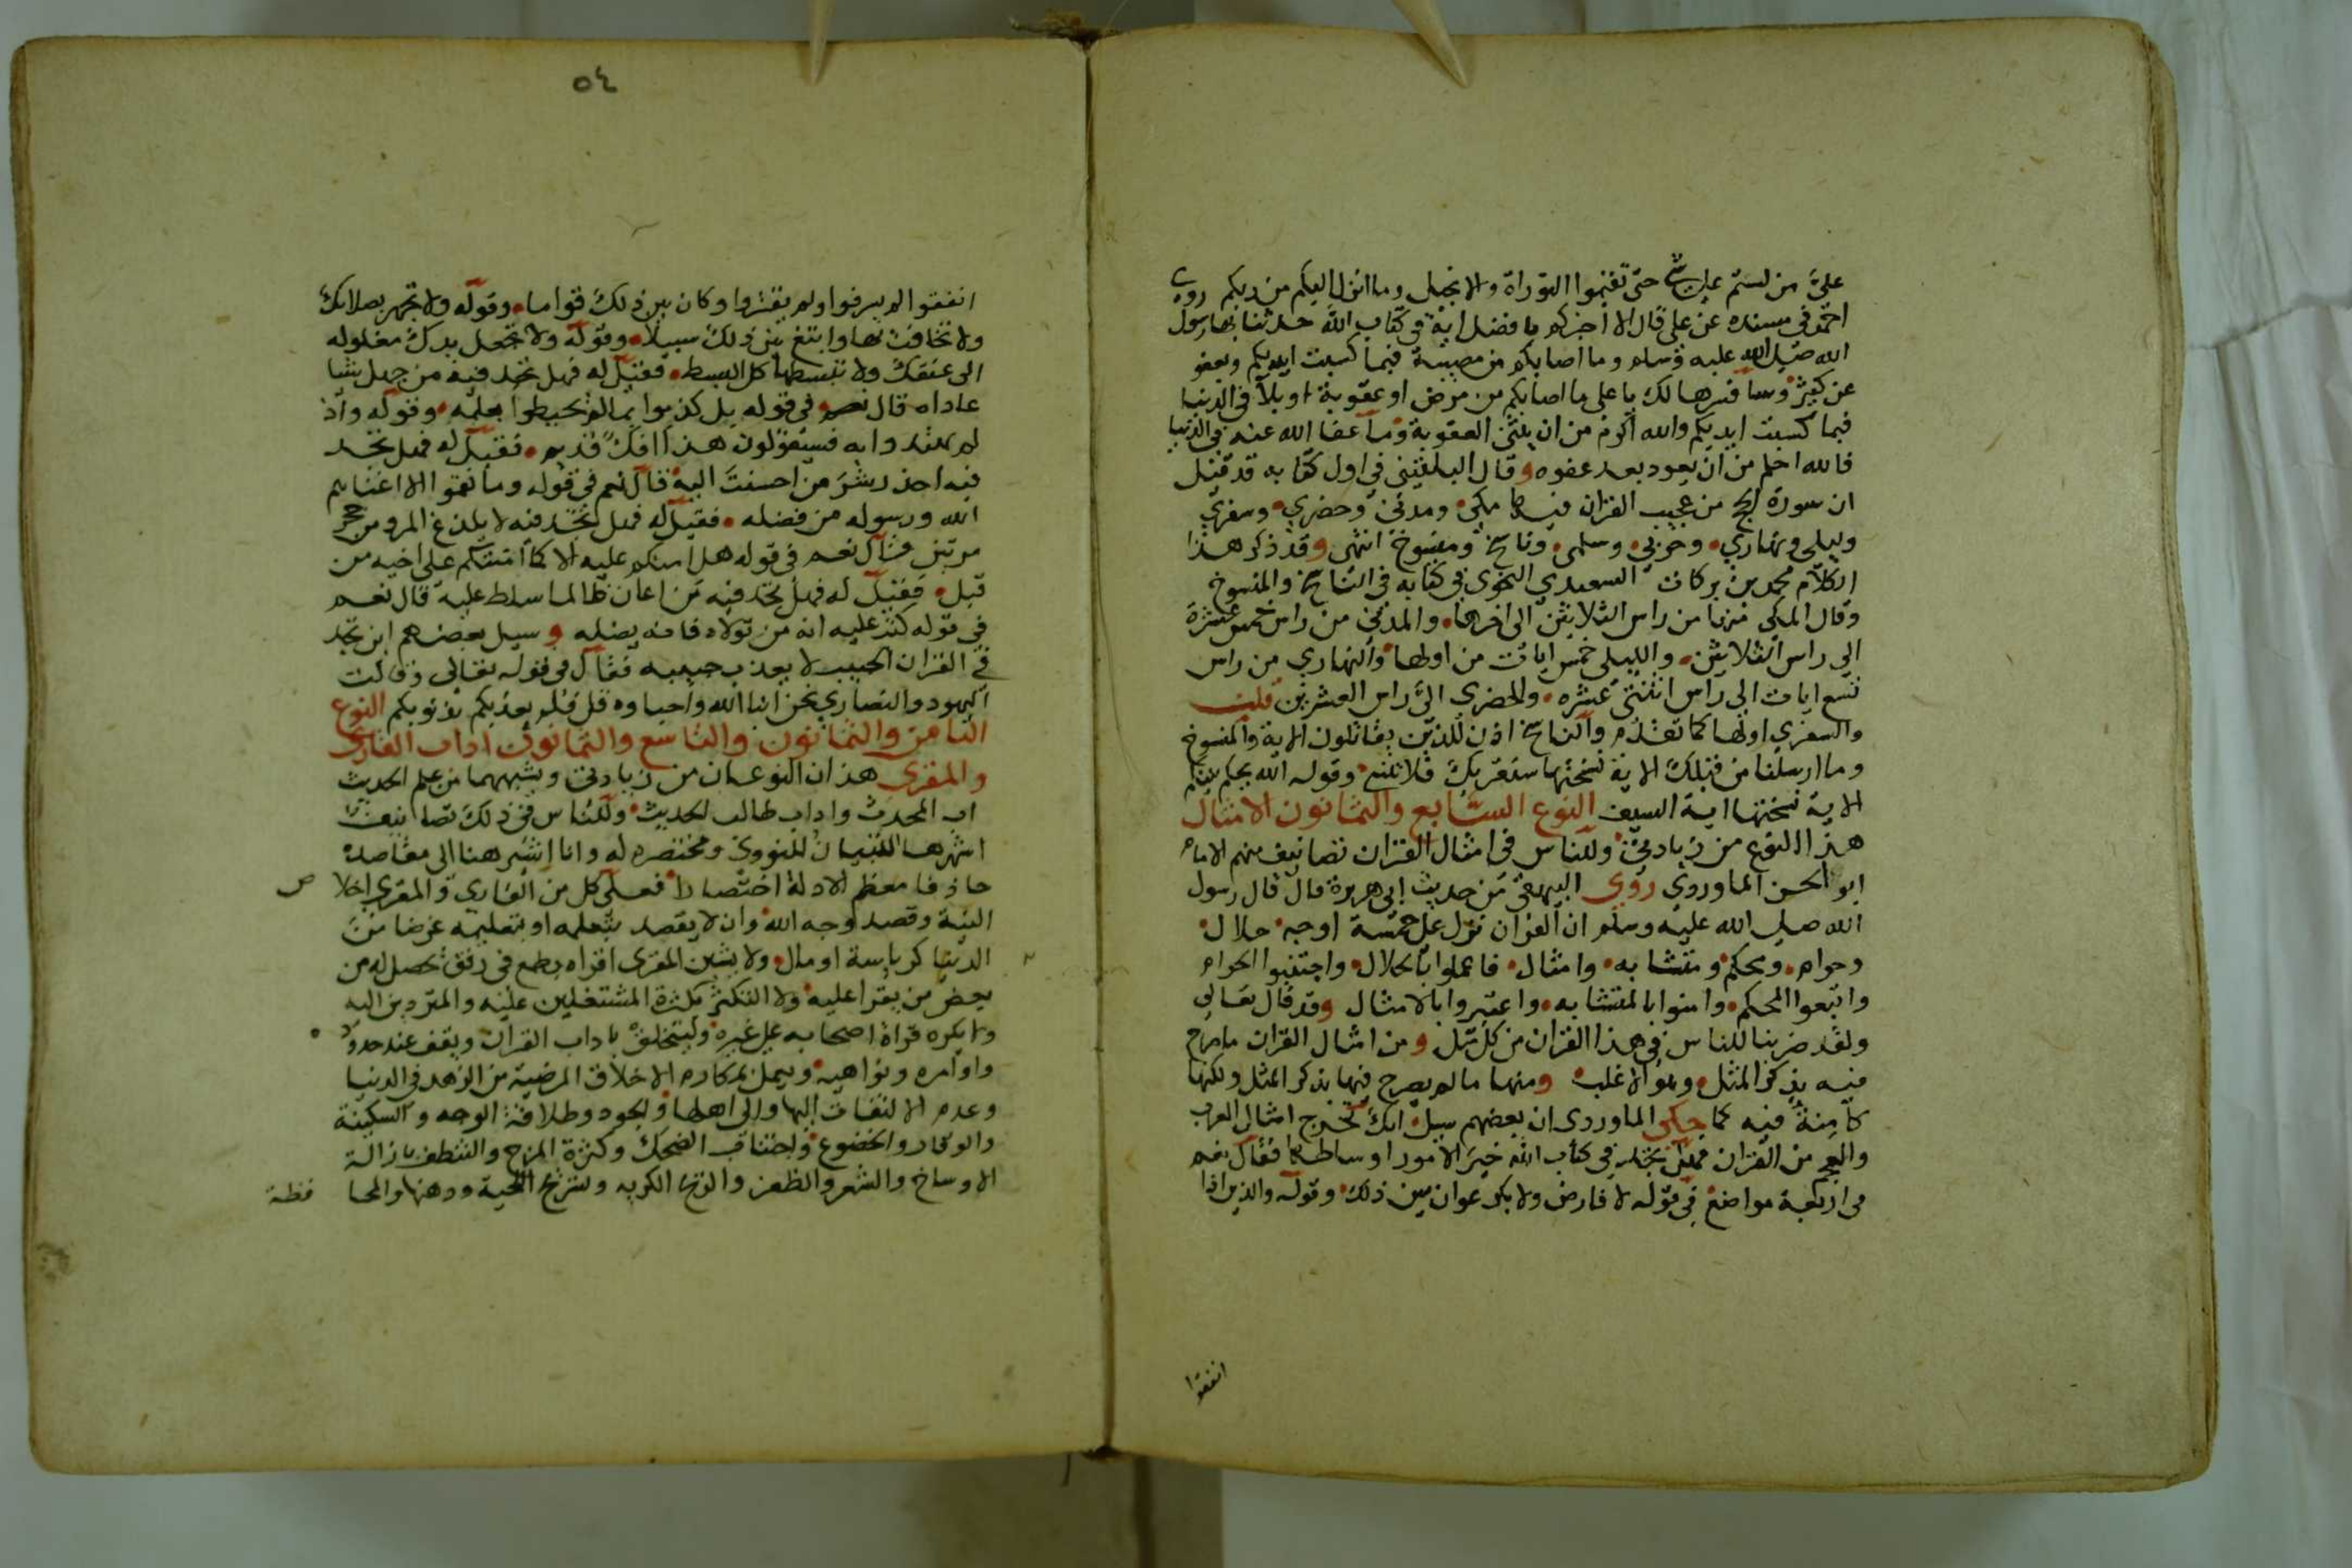 علي من لستم على شيء حتى تقيموا التوراة والانجيل وما انزل اليكم من ربكم روى
احمد في مسنده عن علي قال الا اخبركم بافضل اية في كتاب الله حدثنا بها رسول
الله صلى الله عليه وسلم وما اصابكم من مصيبة فبما كسبت ايديكم ويعفو
عن كثير وسافسرها لك يا علي ما اصابكم من مرض او عقوبة او بلاء في الدنيا
فبما كسبت ايديكم والله اكرم من ان يثني العقوبة وما عفا الله عنه في الدنيا
فالله احلم من ان يعود بعد عفوه وقال البلقيني في اول كتابه قد قيل
ان سورة الحج من عجيب القران فيها مكي ومدني وحضري وسفري
وليلي ونهاري وحربي وسلمي وناسخ ومنسوخ انتهى وقد ذكر هذا
الكلام محمد بن بركات السعيدي النحوي في كتابه في الناسخ والمنسوخ
وقال المكي منها من راس الثلاثين الى اخرها والمدني من راس خمس عشرة
الى راس الثلاثين والليلي خمس ايات من اولها والنهاري من راس
تسع ايات الى راس اثنتي عشره والحضري الى راس العشرين قلت
والسفري اولها كما تقدم والناسخ اذن للذين يقاتلون الاية والمنسوخ
وما ارسلنا من قبلك الاية نسختها سنقريك فلا تنسى وقوله الله يحكم بينكم
الاية نسختها اية السيف النوع السابع والثمانون الامثال
هذا النوع من زيادتي وللناس في امثال القران تصانيف منهم الامام
ابو الحسن الماوردي روى البيهقي من حديث ابي هريرة قال قال رسول
الله صلى الله عليه وسلم ان القران نزل على خمسة اوجه حلال
وحرام ومحكم ومتشابه وامثال فاعملوا بالحلال واجتنبوا الحرام
واتبعوا المحكم وامنوا بالمتشابه واعتبروا بالامثال وقد قال تعالى
ولقد ضربنا للناس في هذا القران من كل مثل ومن امثال القران ما صرح
فيه بذكر المثل وهو الاغلب ومنها ما لم يصرح فيها بذكر المثل ولكنها
كامنة فيه كما حكى الماوردي ان بعضهم سيل انك تخرج امثال العرب
والعجم من القران فهل تجد في كتاب الله خير الامور اوساطها فقال نعم
في اربعة مواضع في قوله لا فارض ولا بكر عوان بين ذلك وقوله والذين اذا
انفقوا
٥٤
انفقوا لم يسرفوا ولم يقتروا وكان بين ذلك قواما وقوله ولا تجهر بصلاتك
ولا تخافت بها وابتغ بين ذلك سبيلا وقوله ولا تجعل يدك مغلوله
الى عنقك ولا تبسطها كل البسط فقيل له فهل تجد فيه من جهل شيا
عاداه قال نعم في قوله بل كذبوا بما لم يحيطوا بعلمه وقوله واذ
لم يهتدوا به فسيقولون هذا افك قديم فقيل له فهل تجد
فيه احذر شر من احسنت اليه قال نعم في قوله وما نقموا الا ان اغناهم
الله ورسوله من فضله فقيل له فهل تجد فيه لا يلدغ المرء من جحر
مرتين قال نعم في قوله هل امنكم عليه الا كما امنتكم على اخيه من
قبل فقيل له فهل تجد فيه من اعان ظالما سلط عليه قال نعم
في قوله كتب عليه انه من تولاه فانه يضله وسيل بعضهم اين تجد
في القران الحبيب لا يعذب حبيبه فقال في قوله تعالى وقالت
اليهود والنصاري نحن ابنا الله واحباوه قل فلم يعذبكم بذنوبكم النوع
الثامن والثمانون والتاسع والثمانون اداب القارى
والمقرى هذان النوعان من زيادتي ويشبههما من علم الحديث
اب المحدث واداب طالب الحديث وللناس في ذلك تصانيف
اشهرها التبيان للنووي ومختصره له وانا اشير هنا الى مقاصده
حاذفا معظم الادلة اختصارا فعلى كل من القاري والمقرى اخلا ص
النية وقصد وجه الله وان لا يقصد بتعلمه او بتعليمه غرضا من
الدنيا كرياسة او مال ولا يشين المقرى اقراه بطمع في رفق يحصل له من
بعض من يقرا عليه ولا التكثر بكثرة المشتغلين عليه والمترددين اليه
ولا يكره قراة اصحابه على غيره وليتخلق باداب القران ويقف عند حدوده
واوامره ونواهيه ويعمل بمكارم الاخلاق المرضية من الزهد في الدنيا
وعدم الالتفات اليها والى اهلها والجود وطلاقة الوجه والسكينة
والوقار والخضوع واجتناب الضحك وكثرة المزح والتنظف بازالة
الاوساخ والشعر والظفر والريح الكريه وتسريح اللحية ودهنها والمحا فظة